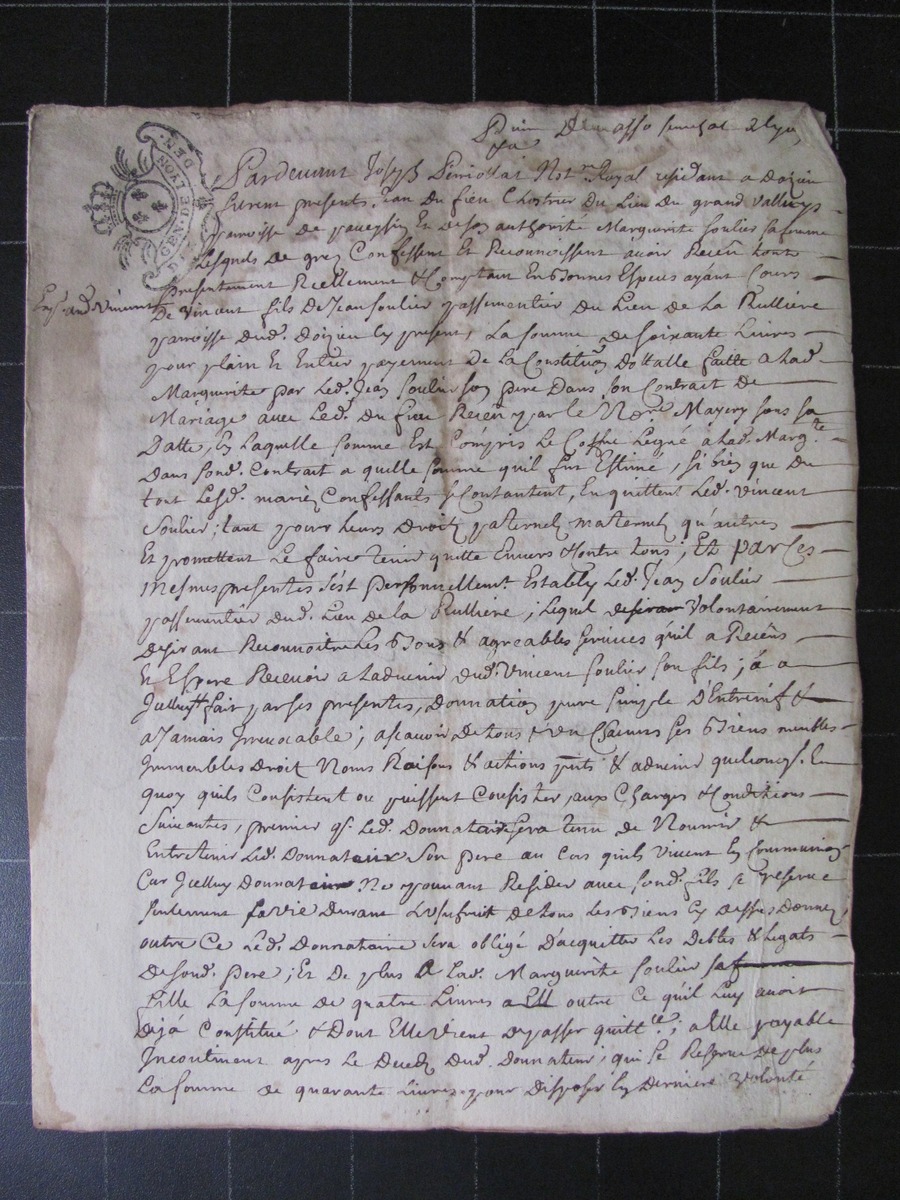 GEN. DE LYON
DEN.
Pardevant Joseph Not.re Royal residant a Doizieu
furent presents, Jean du fieu Chostrier du Lieu du grand Vallluys
parroisse de paveysin Et de son authorité Marguerite Soulier sa femme
Lesquels de grez Confessent Et Reconnoissent avoir Receu tout
presentement Reellement & Comptant En bonnes Especes ayant Cours
Vincent
De vincent fils De Jean Soulier passementier du Lieu de La Rulliere
parroisse dud. doizieu icy present, La somme de soixante Livres
pour plain Et Entier payement de La Constitution Dottalle faitte a lad.
Marguerite par Led. Jean Soulier son pere Dans son Contrat de
Mariage avec Led. Du fieu Receu par le Not.re Mayery sous sa
Datte, En Laquelle somme Est Compris Le Coffre Legué a Lad. Marg.te
Dans sond. Contrat a quelle somme quil fut Estimé, si bien que du
tout Lesd. mariez Confessants se Contantent, En quittent Led. vincent
Soulier; tant pour leurs Droits paternels maternels qu'autres
Et promettent Le faire tenir quitte Envers & Contre tous; Et par Ces
Mesmes presentes s'est personnellement Estably Led. Jean Soulier
passementier dud. Lieu de la Rulliere; lequel desirant Volontairement
desirant Reconnoitre Les bons & agreables services quil a Receus
Et Espere Recevoir a Ladvenir dud. Vincent Soulier son fils; a a
Jcelluy fait par ses presentes, Donnation pure simple D'Entrevifs &
a Jamais Jrrevocable; ascavoir De tous & un Chacuns ses biens meubles
Jmmeubles Droit Noms Raisons & actions pnts & advenir quelconqs. En
quoy quils Consistent ou puissent Consister, aux Charges & Conditions
Suivantes, premier q. Led. Donnataire sera tenu de Nourrir &
Entretenir Led. Donnateur Son pere au Cas quils vivent En Communion
Car Jcelluy Donnateur Ne pouvant Resider avec sond. fils se reserve
seulement sa vie Durant L'usufruit de tous Les biens Cy dessus Donnez,
outre Ce Led. Donnataire sera obligé D'acquitter Les Debtes & Legats
de sond. pere; Et De plus A Lad. Marguerite Soulier sa femme
fille La somme de quatre Livres a Ell outre Ce quil Luy avoit
Déjà Constitué & Dont Elle vient de passer quitt.ce; a Elle payable
Jncontinent apres Le Decedz dud. Donnateur; qui se Reserve de plus
La somme de quarante Livres pour Disposer En Derniere volonté